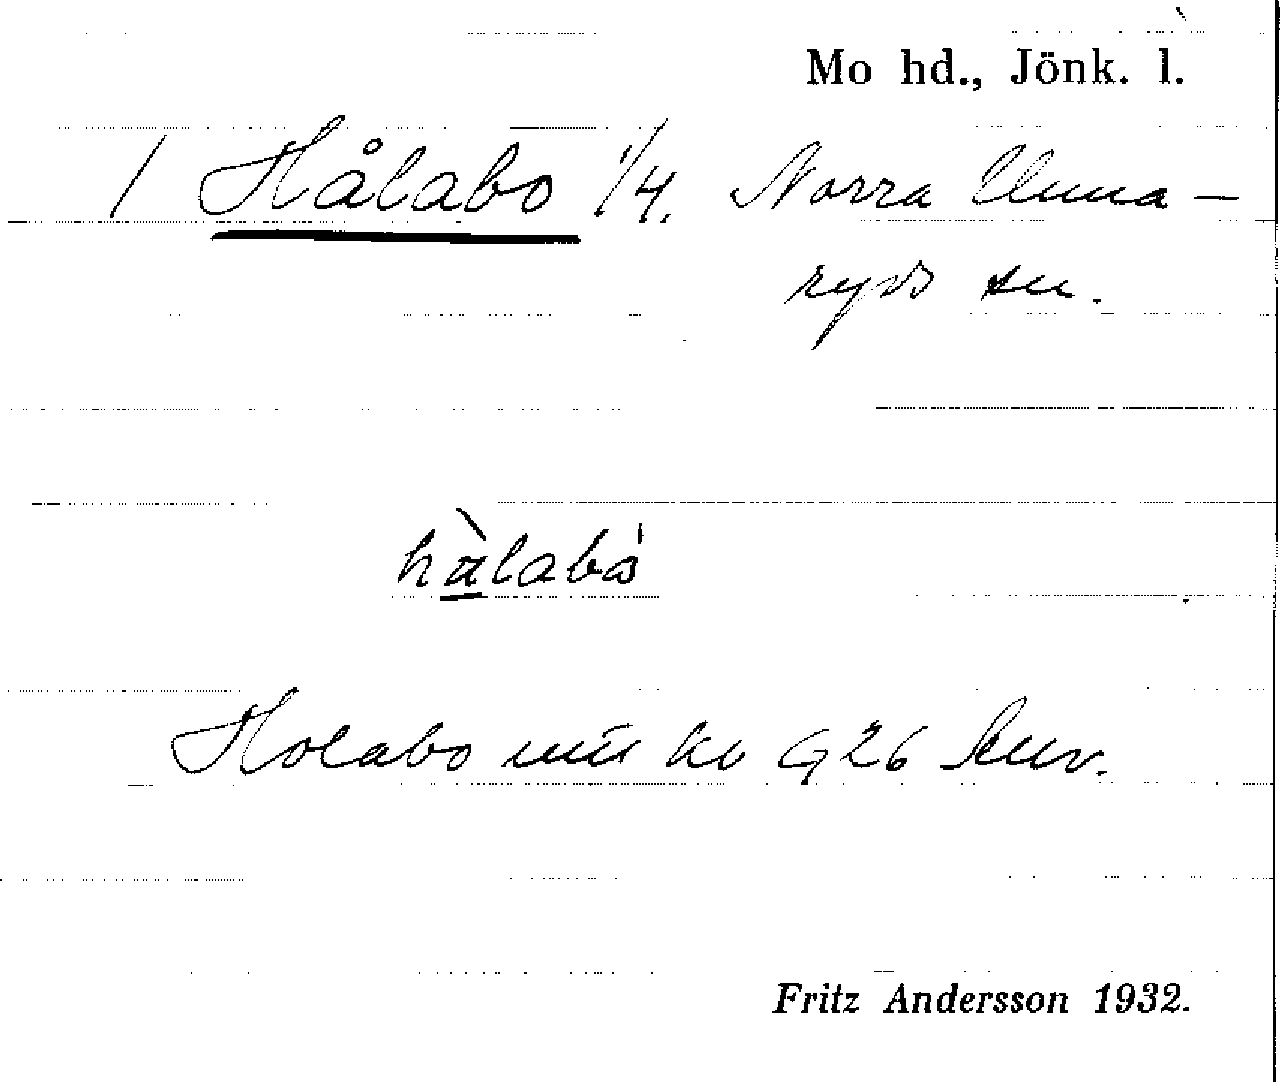 Mo hd., Jönk. l.
/ Hålabo 1/4. Norra Unna-
ryds sn.
hàlabó
Holabo
Fritz Andersson 1932.